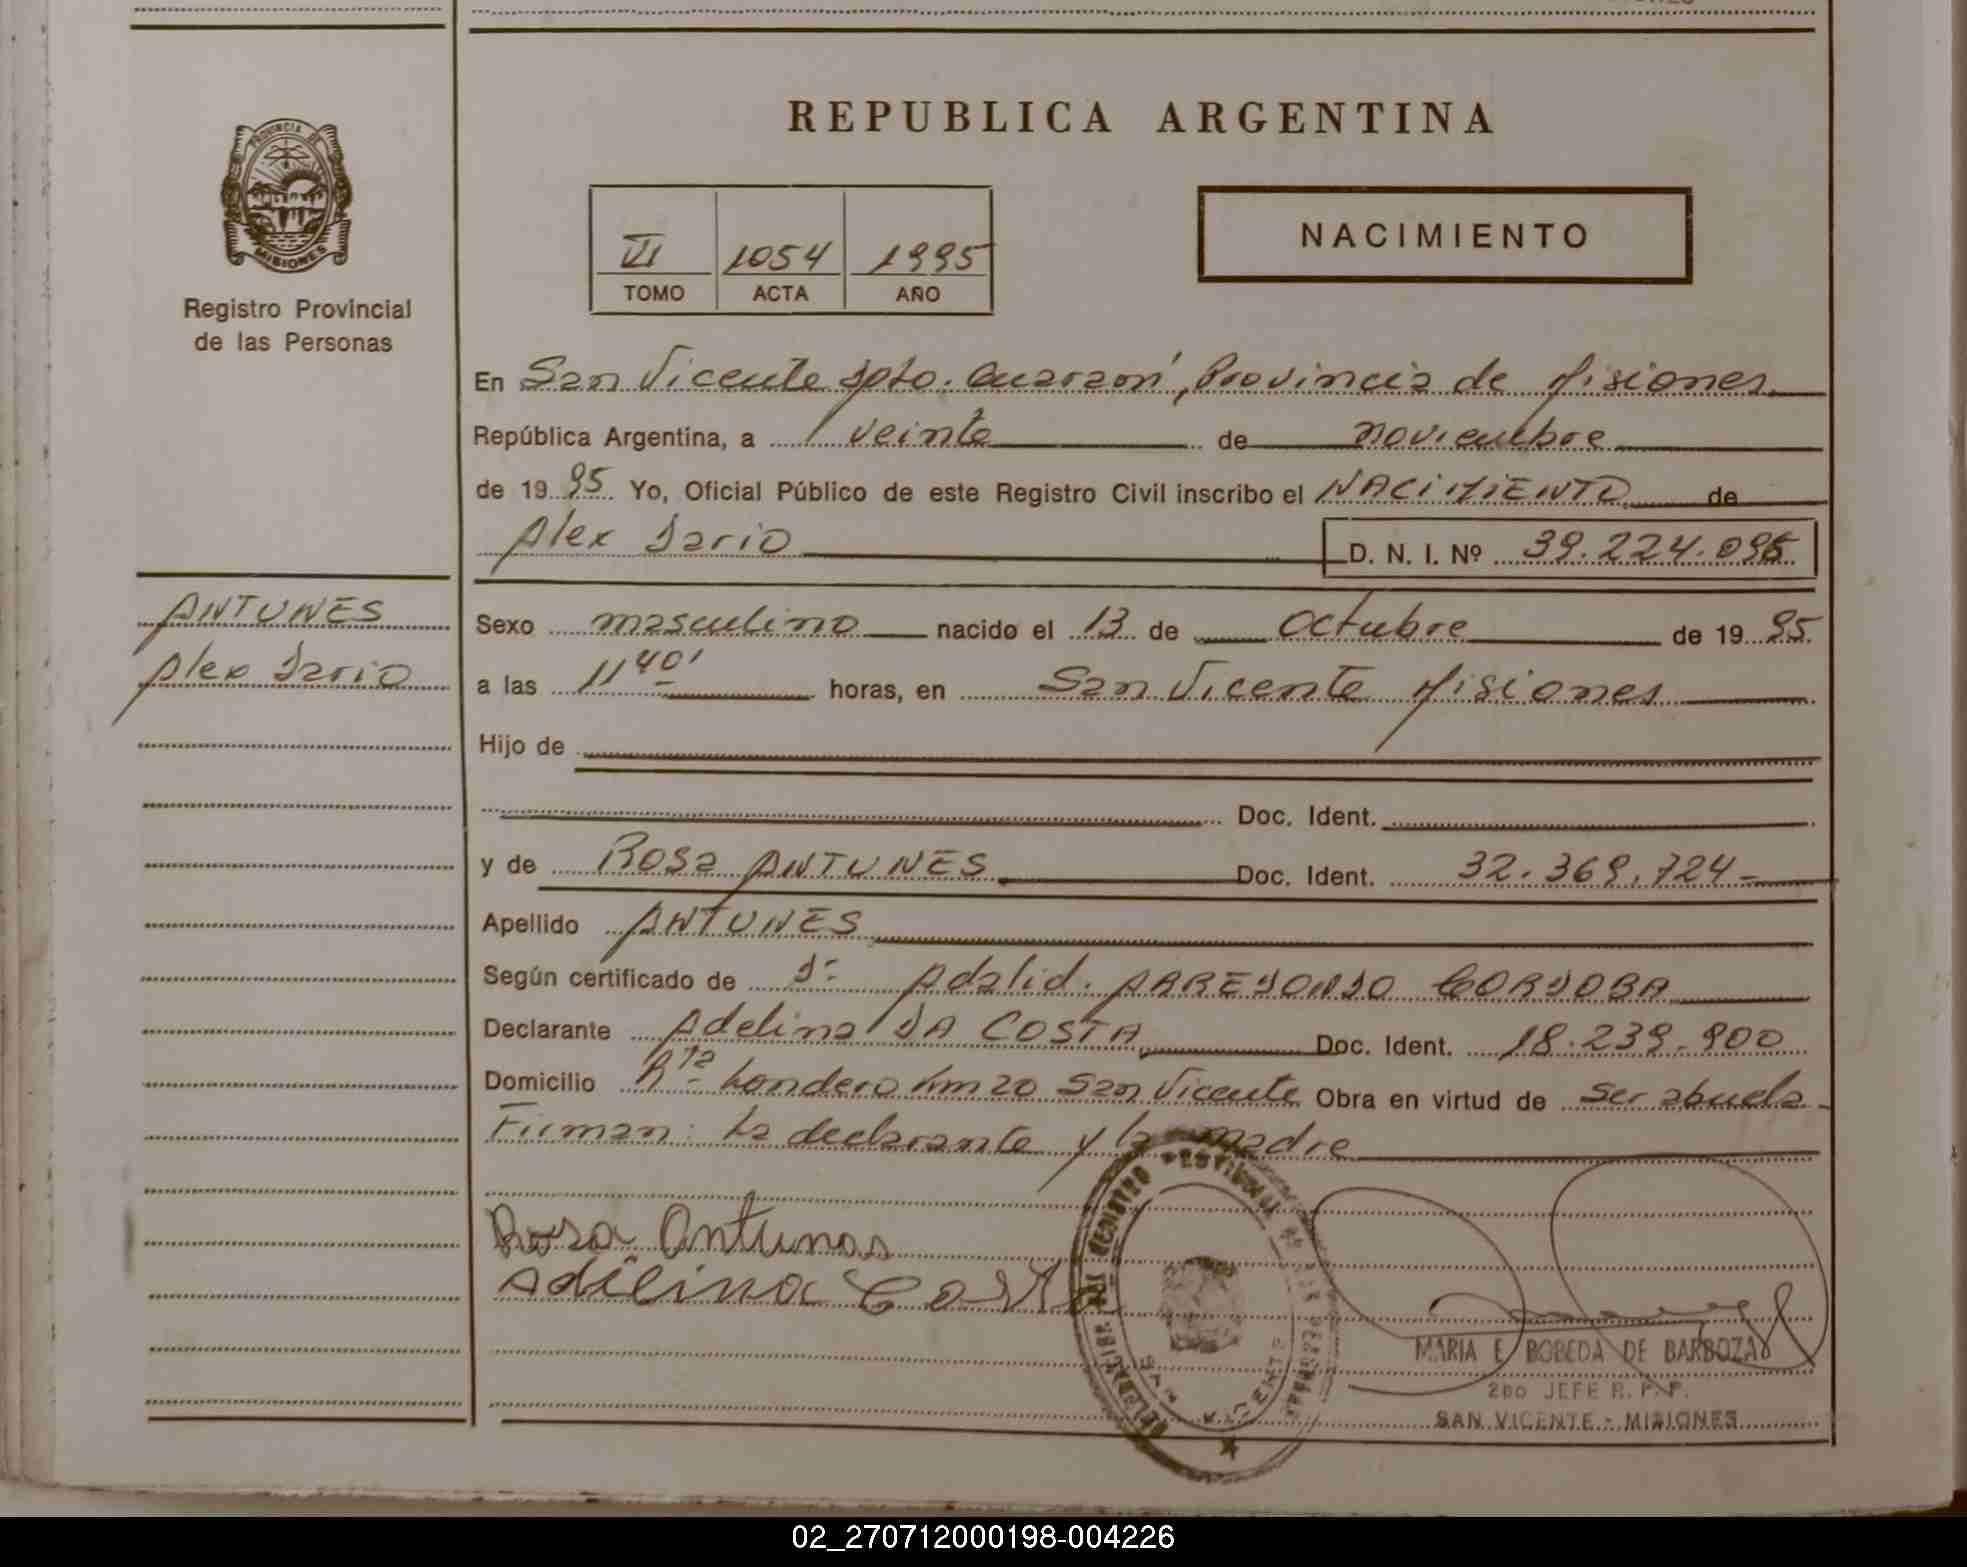 REPUBLICA ARGENTINA
PROVINCIA DE
MISIONES
Registro Provincial
de las Personas
VI 1054 1995
TOMO ACTA AÑO
NACIMIENTO
En San Vicente Dpto. Guaraní, Provincia de Misiones
República Argentina, a veinte de noviembre
de 1995 Yo, Oficial Público de este Registro Civil inscribo el NACIMIENTO de
Alex Dario D. N. I. Nº 39.224.095
ANTUNES
Alex Dario
Sexo masculino nacido el 13 de octubre de 1995
a las 11 40' horas, en San Vicente Misiones
Hijo de
Doc. Ident.
y de Rosa ANTUNES Doc. Ident. 32.369.724-
Apellido ANTUNES
Según certificado de Dr Adalid. ARREDONDO CORDOBA
Declarante Adelina DA COSTA Doc. Ident. 18.239.900
Domicilio Rta Londero Km 20 San Vicente Obra en virtud de ser abuela
Firman: La declarante y la madre
Rosa Antunes
Adilina Costa
SAN VICENTE
MARIA E BOBEDA DE BARBOZA
2DO JEFE R. P. P.
SAN VICENTE - MISIONES
02_270712000198-004226